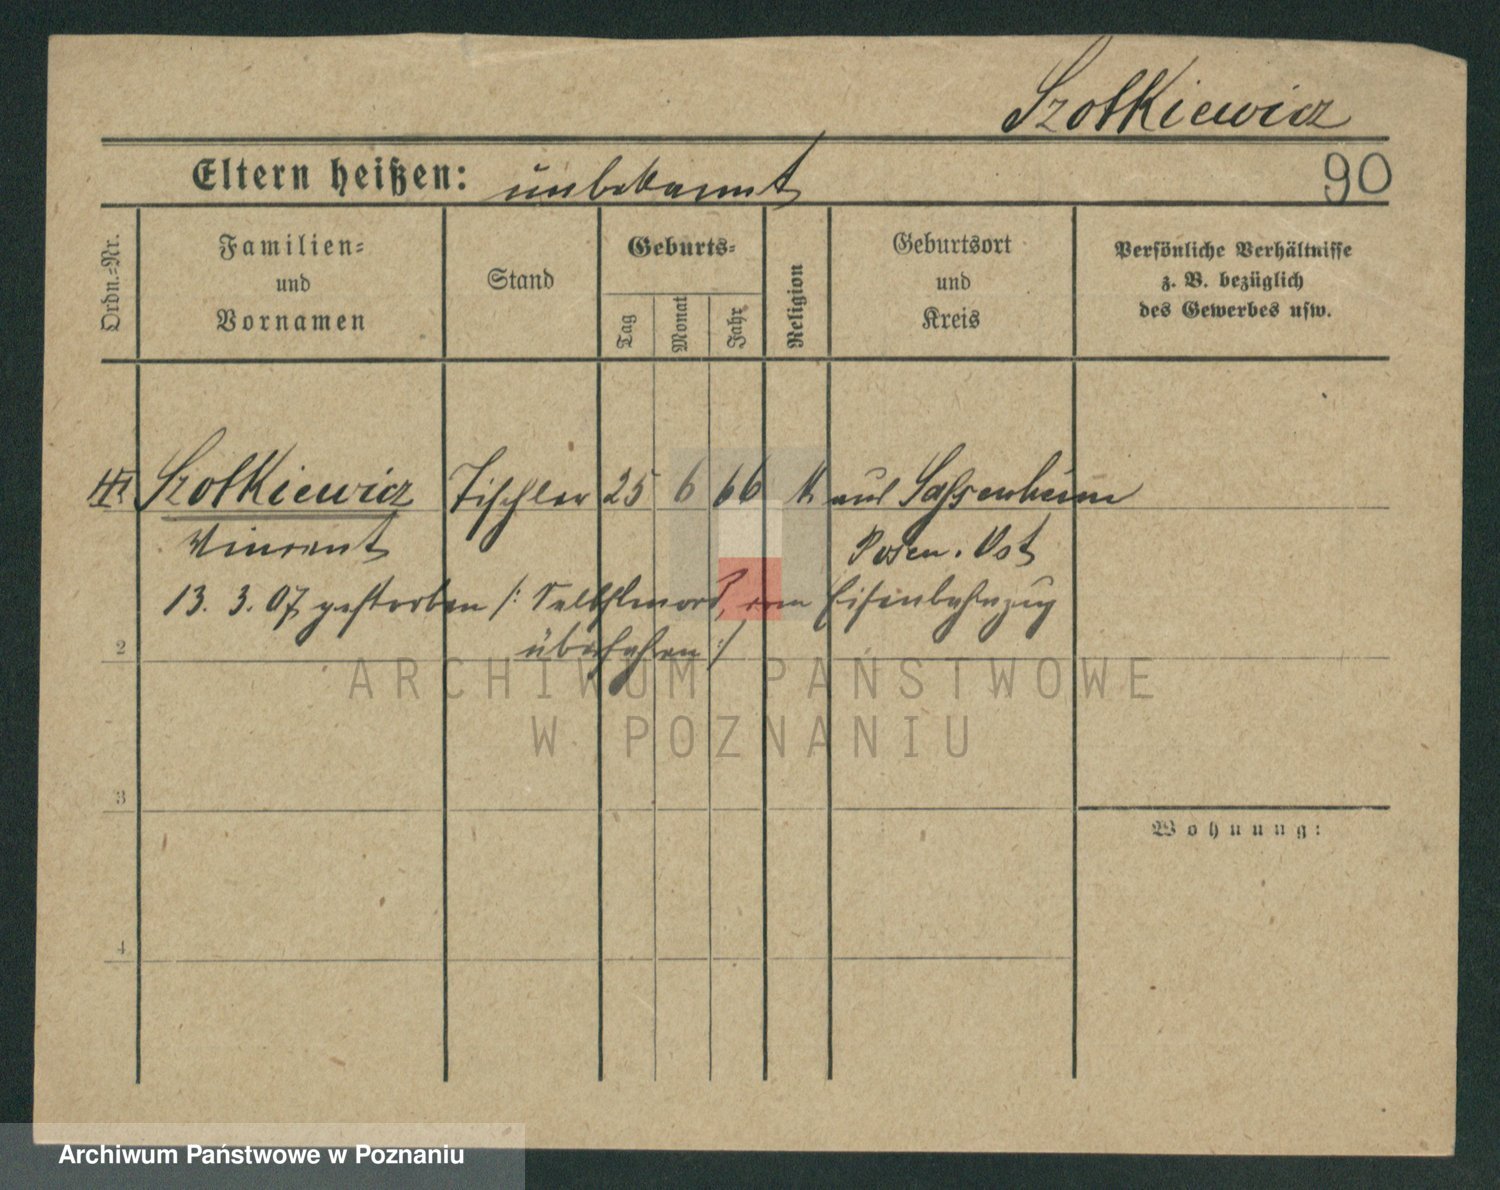 Szotkiewicz
Eltern heißen: unbekannt
90
Ordn.=Nr.
Familien=
und
Vornamen
Stand
Geburts=
Tag
Monat
Jahr
Religion
Geburtsort
und
Kreis
Persönliche Verhältnisse
z. B. bezüglich
des Gewerbes usw.
Szotkiewicz Tischler 25 6 66 k Sassenheim
Vincent Posen. Ost
13. 3. 07, gestorben /: Selbstmord, vom Eisenbahnzug
überfahren :/
2
3
4
Wohnung:
ARCHIWUM PAŃSTWOWE
W POZNANIU
Archiwum Państwowe w Poznaniu